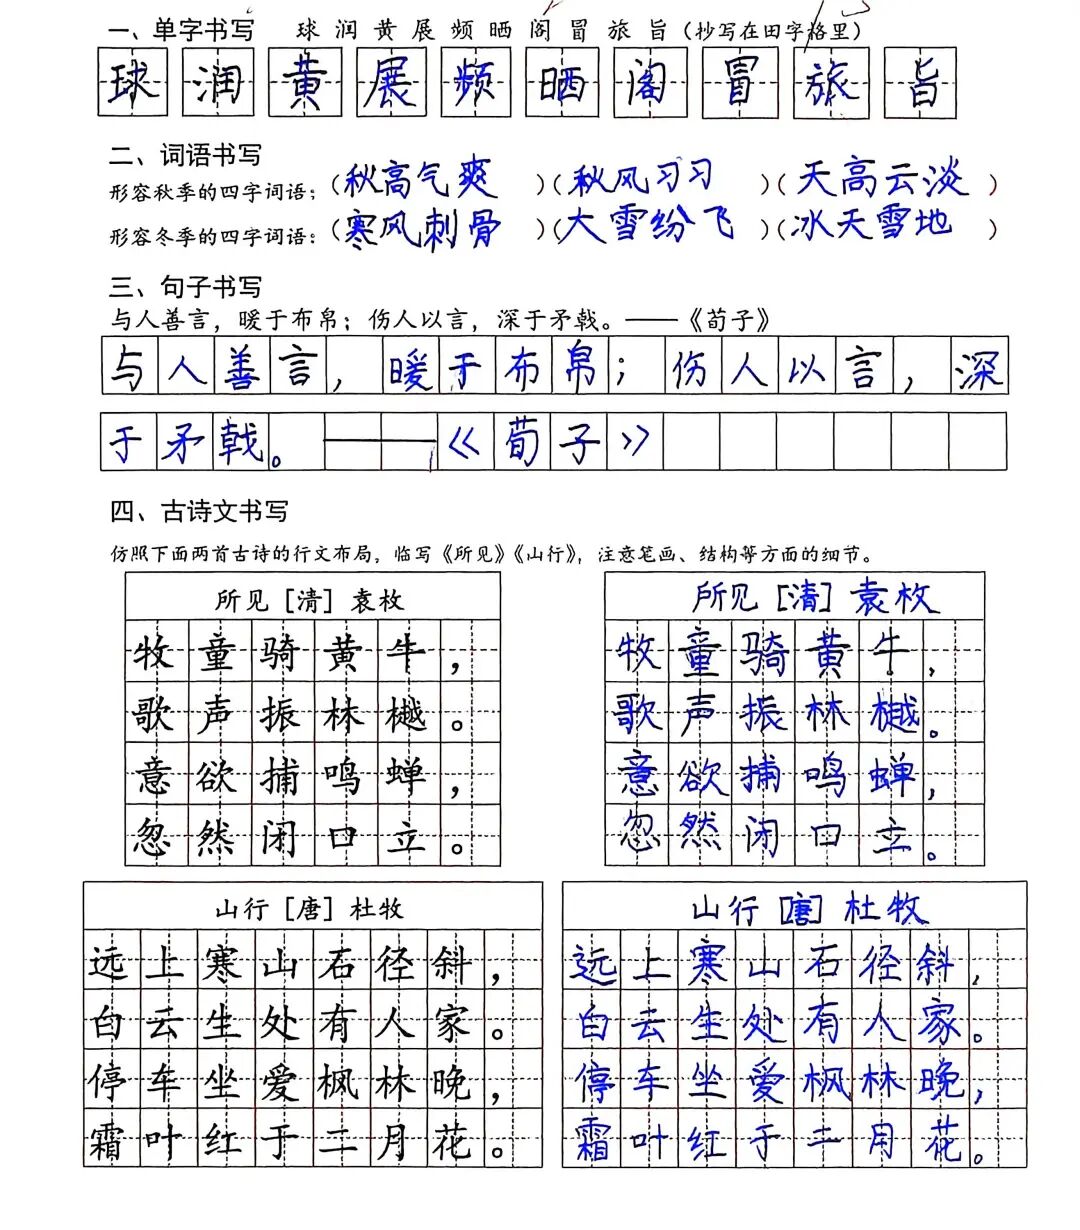 一、单字书写 球 润 黄 展 频 晒 阁 冒 旅 旨（抄写在田字格里）
球 润 黄 展 频 晒 阁 冒 旅 旨
二、词语书写
形容秋季的四字词语：（秋高气爽）（秋风习习）（天高云淡）
形容冬季的四字词语：（寒风刺骨）（大雪纷飞）（冰天雪地）
三、句子书写
与人善言，暖于布帛；伤人以言，深于矛戟。——《荀子》
与人善言，暖于布帛；伤人以言，深
于矛戟。——《荀子》
四、古诗文书写
仿照下面两首古诗的行文布局，临写《所见》《山行》，注意笔画、结构等方面的细节。
所见［清］袁枚
牧童骑黄牛，
歌声振林樾。
意欲捕鸣蝉，
忽然闭口立。
所见［清］袁枚
牧童骑黄牛，
歌声振林樾。
意欲捕鸣蝉，
忽然闭口立。
山行［唐］杜牧
远上寒山石径斜，
白云生处有人家。
停车坐爱枫林晚，
霜叶红于二月花。
山行［唐］杜牧
远上寒山石径斜，
白云生处有人家。
停车坐爱枫林晚，
霜叶红于二月花。